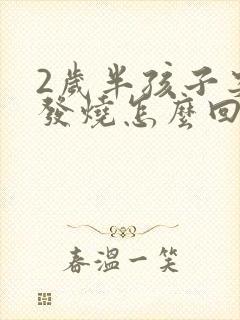 2歲半孩子
發燒怎麼回
春溫一笑